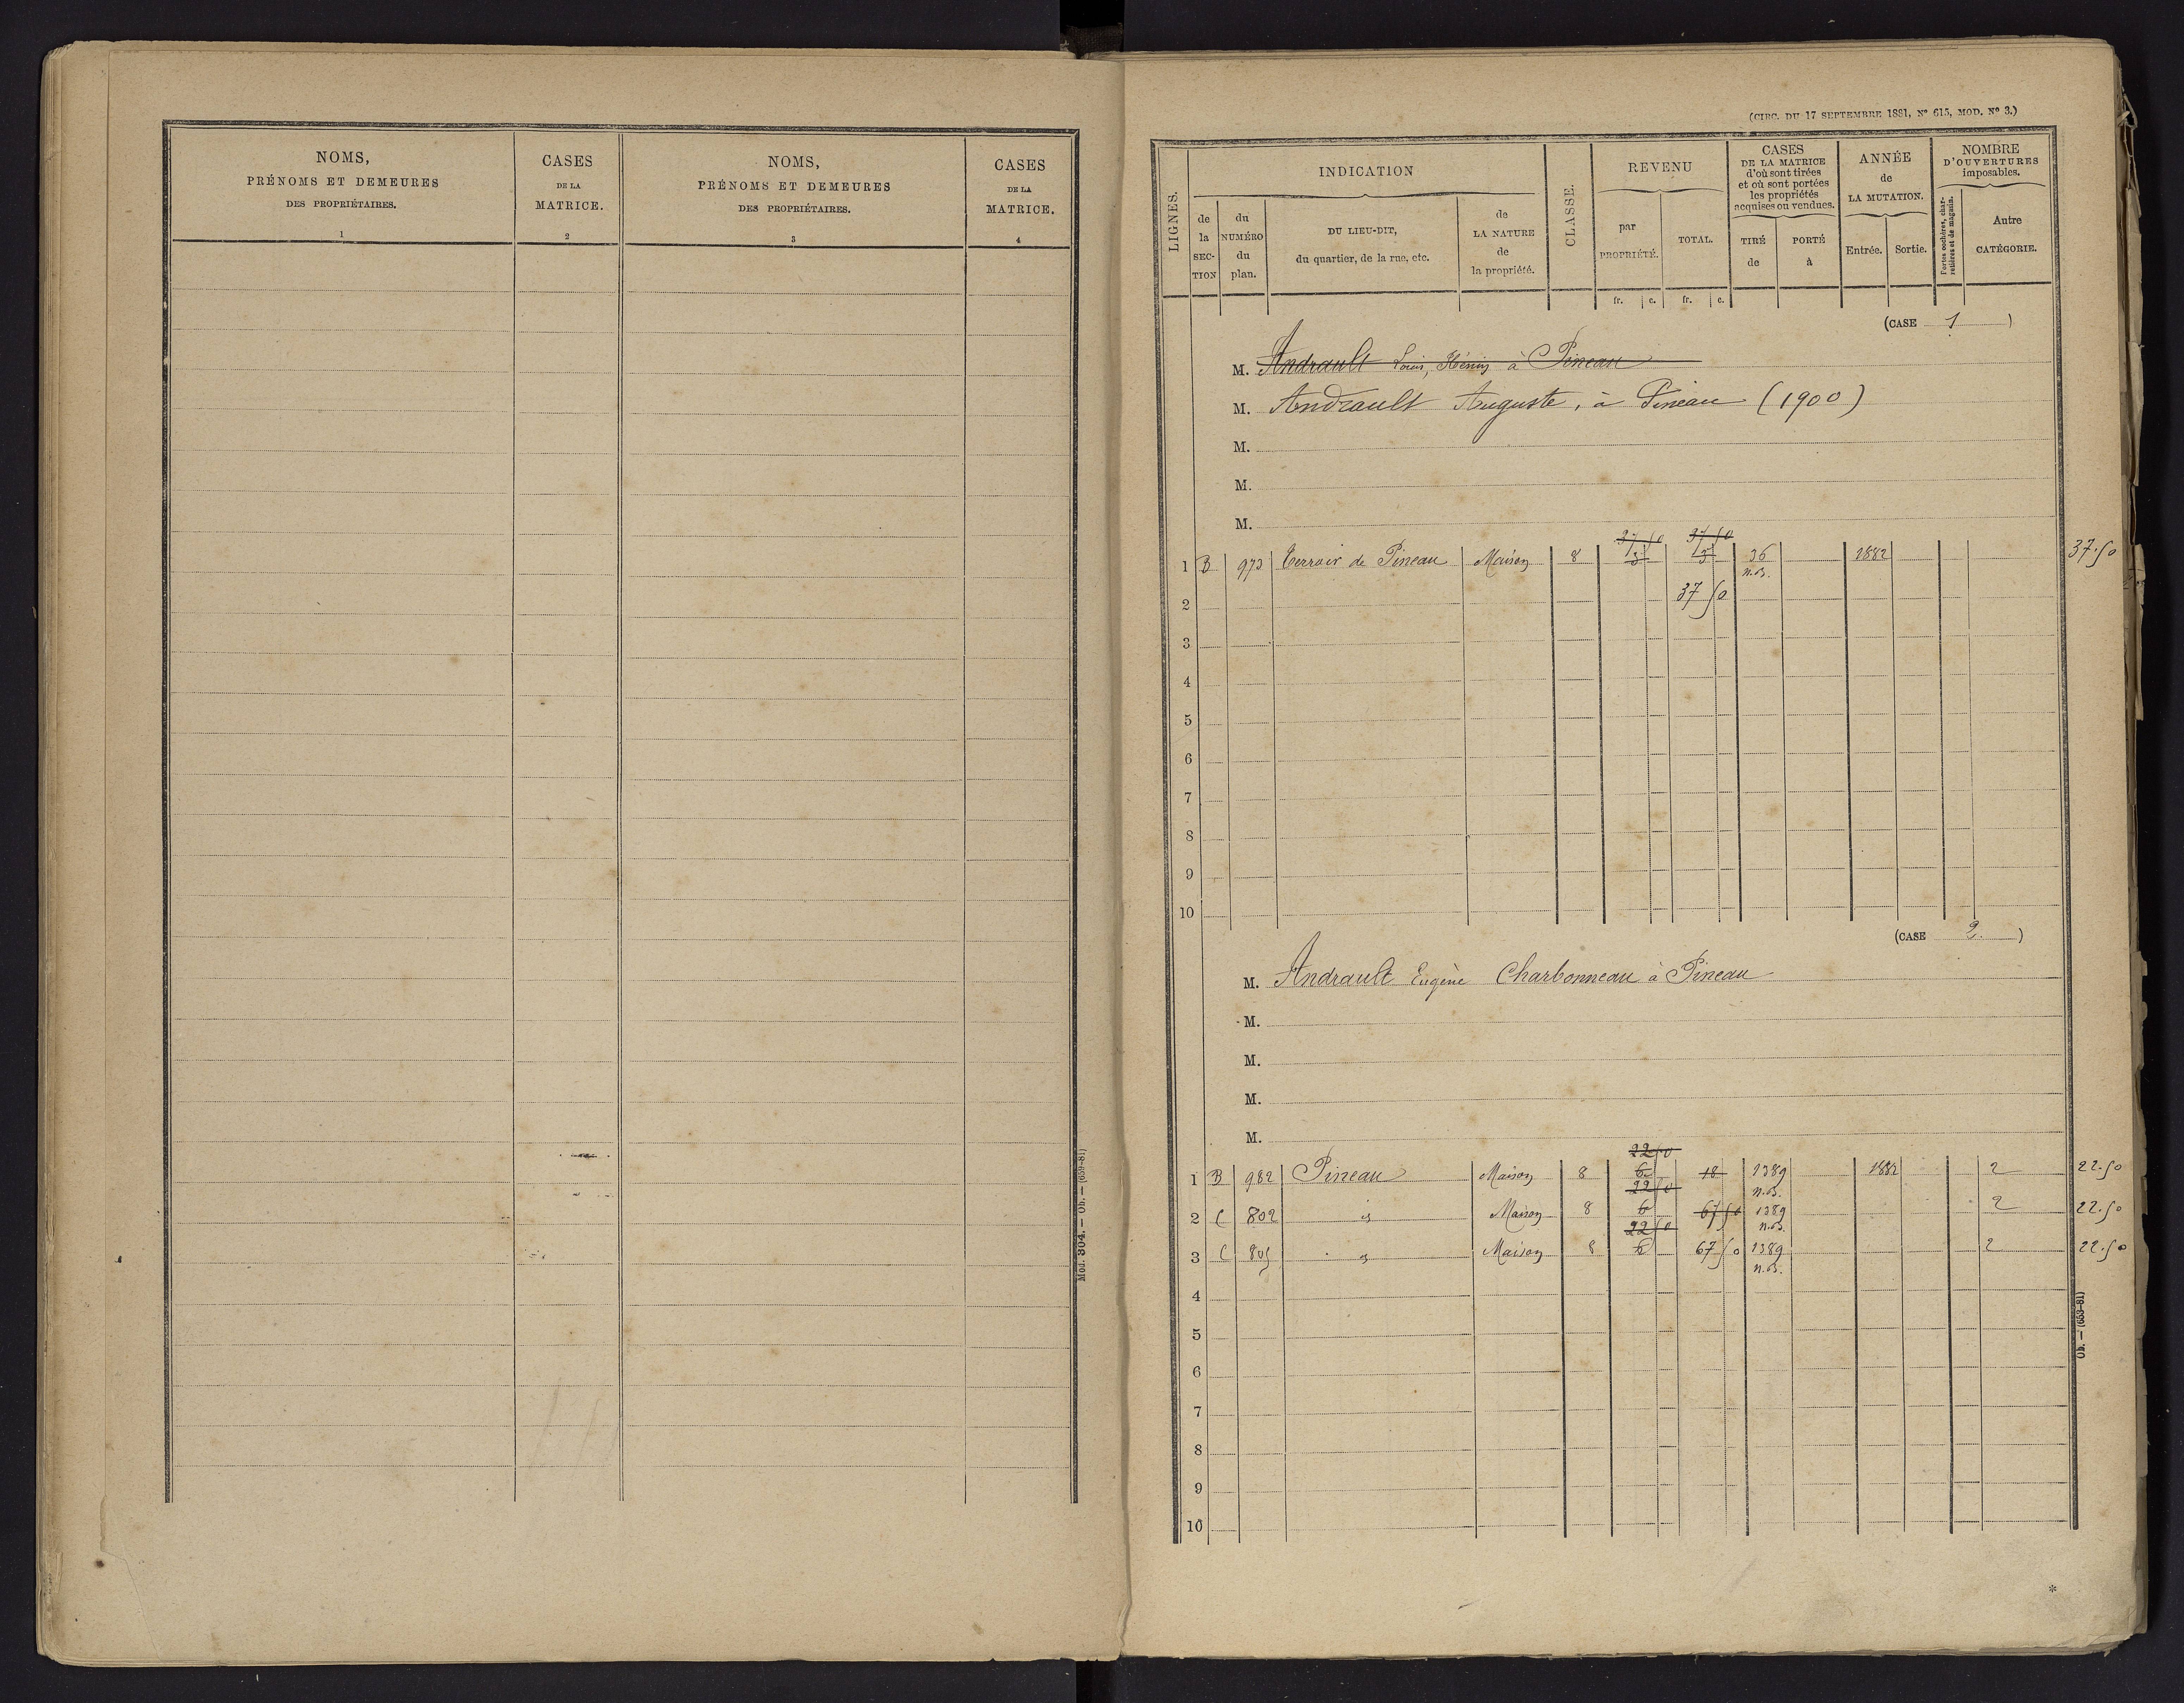 NOMS,
PRÉNOMS ET DEMEURES
DES PROPRIÉTAIRES.
1
CASES
DE LA
MATRICE.
2
NOMS,
PRÉNOMS ET DEMEURES
DES PROPRIÉTAIRES.
3
CASES
DE LA
MATRICE.
4
Mod. 304. — Ob. — (659-81)
(CIRC. DU 17 SEPTEMBRE 1881, N° 615, MOD. N° 3.)
LIGNES.
INDICATION
de la SECTION
du NUMÉRO du plan.
DU LIEU-DIT,
du quartier, de la rue, etc.
de LA NATURE de la propriété.
CLASSE.
REVENU
par PROPRIÉTÉ.
TOTAL.
fr. c. fr. c.
CASES
DE LA MATRICE
d'où sont tirées
et où sont portées
les propriétés
acquises ou vendues.
TIRÉ de
PORTÉ à
ANNÉE
de
LA MUTATION.
Entrée. Sortie.
NOMBRE
D'OUVERTURES
imposables.
Portes cochères, charretières et de magasin.
Autre
CATÉGORIE.
(CASE 1)
M. Andrault Louis, à Pineau
M. Andrault Auguste, à Pineau (1900)
M.
M.
M.
37 50 37 50
1 B 973 Terroir de Pineau Maison 8 36 1882 37.50
n.B.
2 37 50
3
4
5
6
7
8
9
10
(CASE 2.)
M. Andrault Eugène Charbonneau à Pineau
M.
M.
M.
M.
22 50
1 B 982 Pineau Maison 8 6 18 1389 1882 2 22.50
22 50 n.B.
2 C 802 Maison 8 6 67 50 1389 2 22.50
22 50 n.B.
3 C 805 Maison 8 6 67 50 1389 2 22.50
n.B.
4
5
6
7
8
9
10
Ob. — (653-81)
*